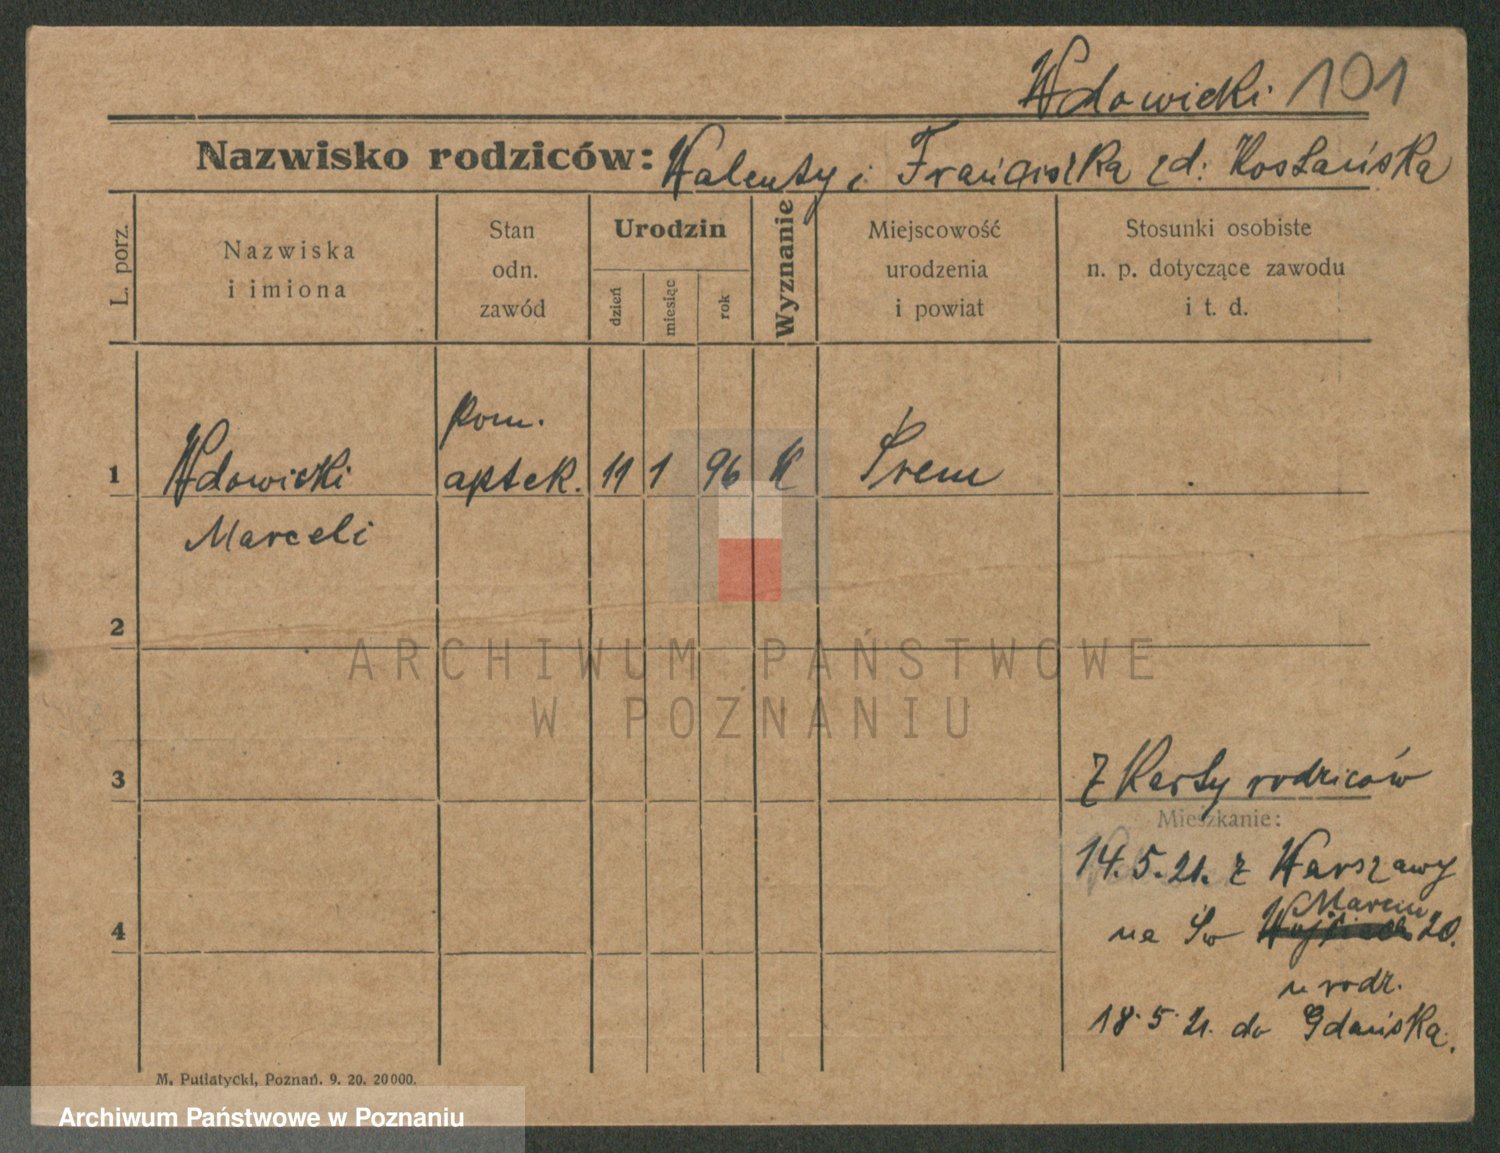 Wdowicki 101
Nazwisko rodziców: Walenty i Franciszka zd: Koslańska
L. porz.
Nazwiska
i imiona
Stan
odn.
zawód
Urodzin
dzień
miesiąc
rok
Wyznanie
Miejscowość
urodzenia
i powiat
Stosunki osobiste
n. p. dotyczące zawodu
i t. d.
pom.
1 Wdowicki aptek. 11 1 96 K Śrem
Marceli
2
ARCHIWUM PAŃSTWOWE
W POZNANIU
3
Z Karty rodziców
Mieszkanie:
14.5.21. z Warszawy
Marcin
4 na Św 20.
u rodz.
18.5.21. do Gdańska.
M. Putiatycki, Poznań. 9. 20. 20000.
Archiwum Państwowe w Poznaniu